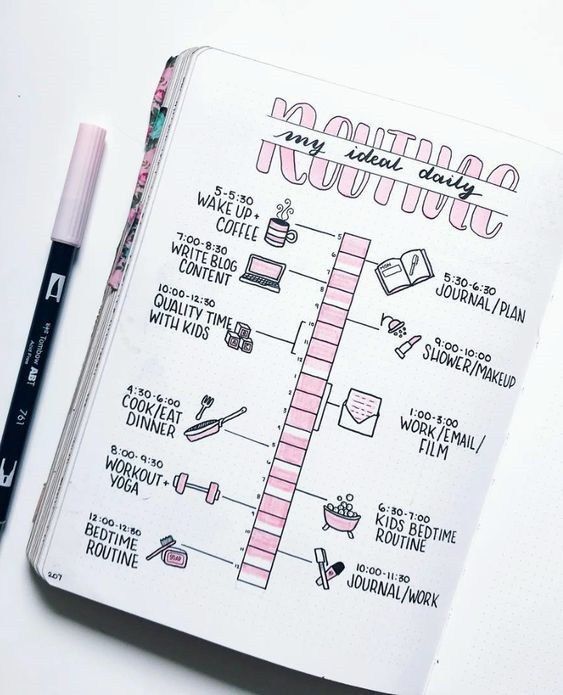 ROUTINE
my ideal daily
5-5:30
WAKE UP +
COFFEE
5:30-6:30
JOURNAL/PLAN
7:00-8:30
WRITE BLOG
CONTENT
9:00-10:00
SHOWER/MAKEUP
10:00-12:30
QUALITY TIME
WITH KIDS
1:00-3:00
WORK/EMAIL/
FILM
4:30-6:00
COOK/EAT
DINNER
6:30-7:00
KIDS BEDTIME
ROUTINE
8:00-9:30
WORKOUT+
YOGA
10:00-11:30
JOURNAL/WORK
12:00-12:30
BEDTIME
ROUTINE
SOAP
5
6
7
8
9
10
11
12
1
2
3
4
5
6
7
8
9
10
11
12
207
Tombow ABT
761